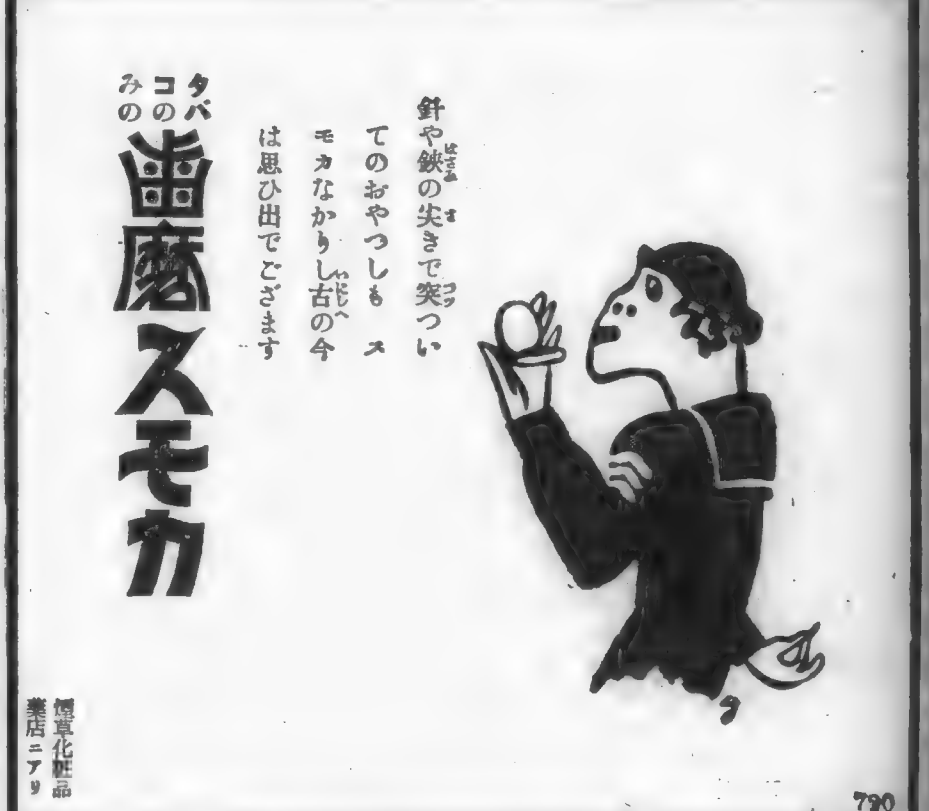 針や鋏の尖きで突つい
てのおやつしも ス
モカなかりし古の今
は思ひ出でござます
タバ
コの
みの
歯磨スモカ
煙草化粧品
薬店ニアリ
790